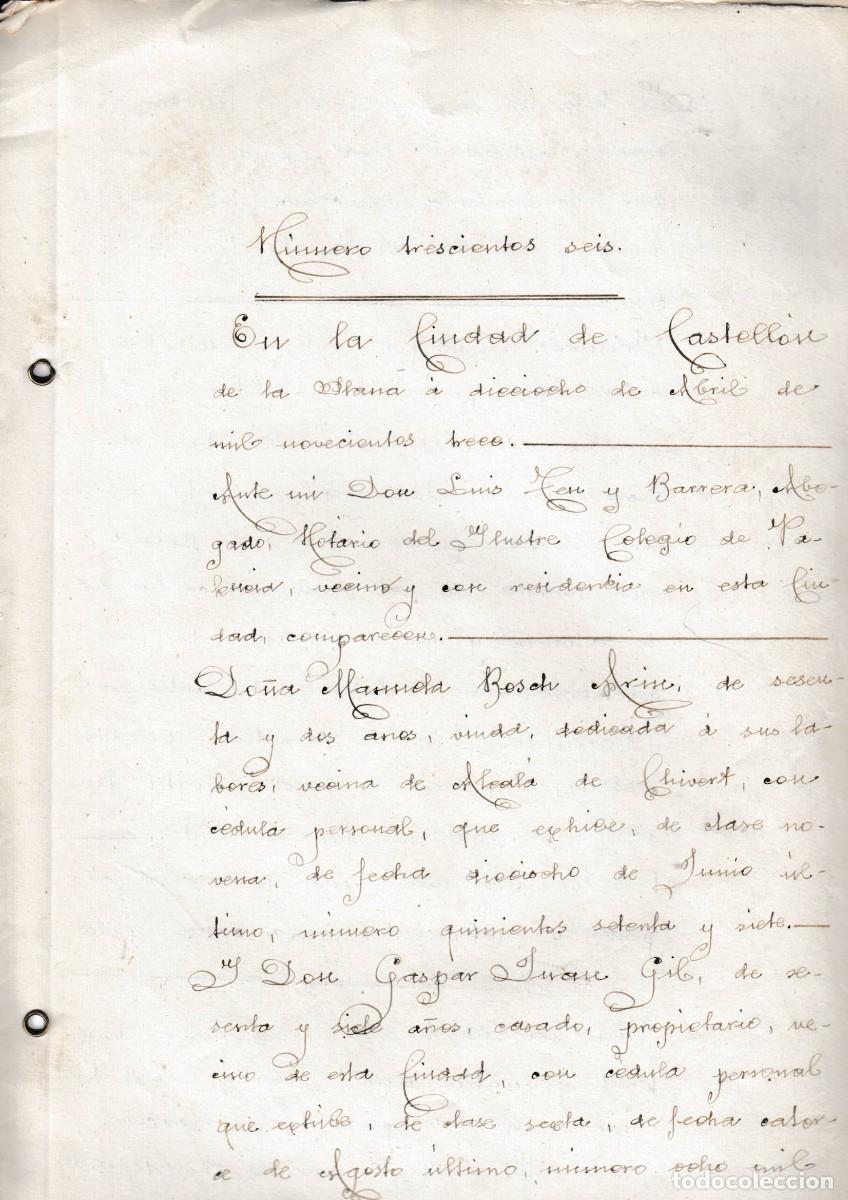 Número trescientos seis.
En la Ciudad de Castellón
de la Plana á dieciocho de Abril de
mil novecientos trece.
Ante mi Don Luis Ten y Barrera, Abo-
gado, Notario del Ilustre Colegio de Va-
lencia, vecino y con residencia en esta Ciu-
dad, comparecen.
Doña Manuela Bosch Arin, de sesen-
ta y dos años, viuda, dedicada á sus la-
bores, vecina de Alcalá de Chivert, con
cédula personal, que exhibe, de clase no-
vena, de fecha dieciocho de Junio úl-
timo, número quinientos setenta y siete.
Y Don Gaspar Juan Gil, de se-
senta y siete años, casado, propietario, ve-
cino de esta Ciudad, con cédula personal
que exhibe, de clase sexta, de fecha cator-
ce de Agosto último, número ocho mil
todocoleccion